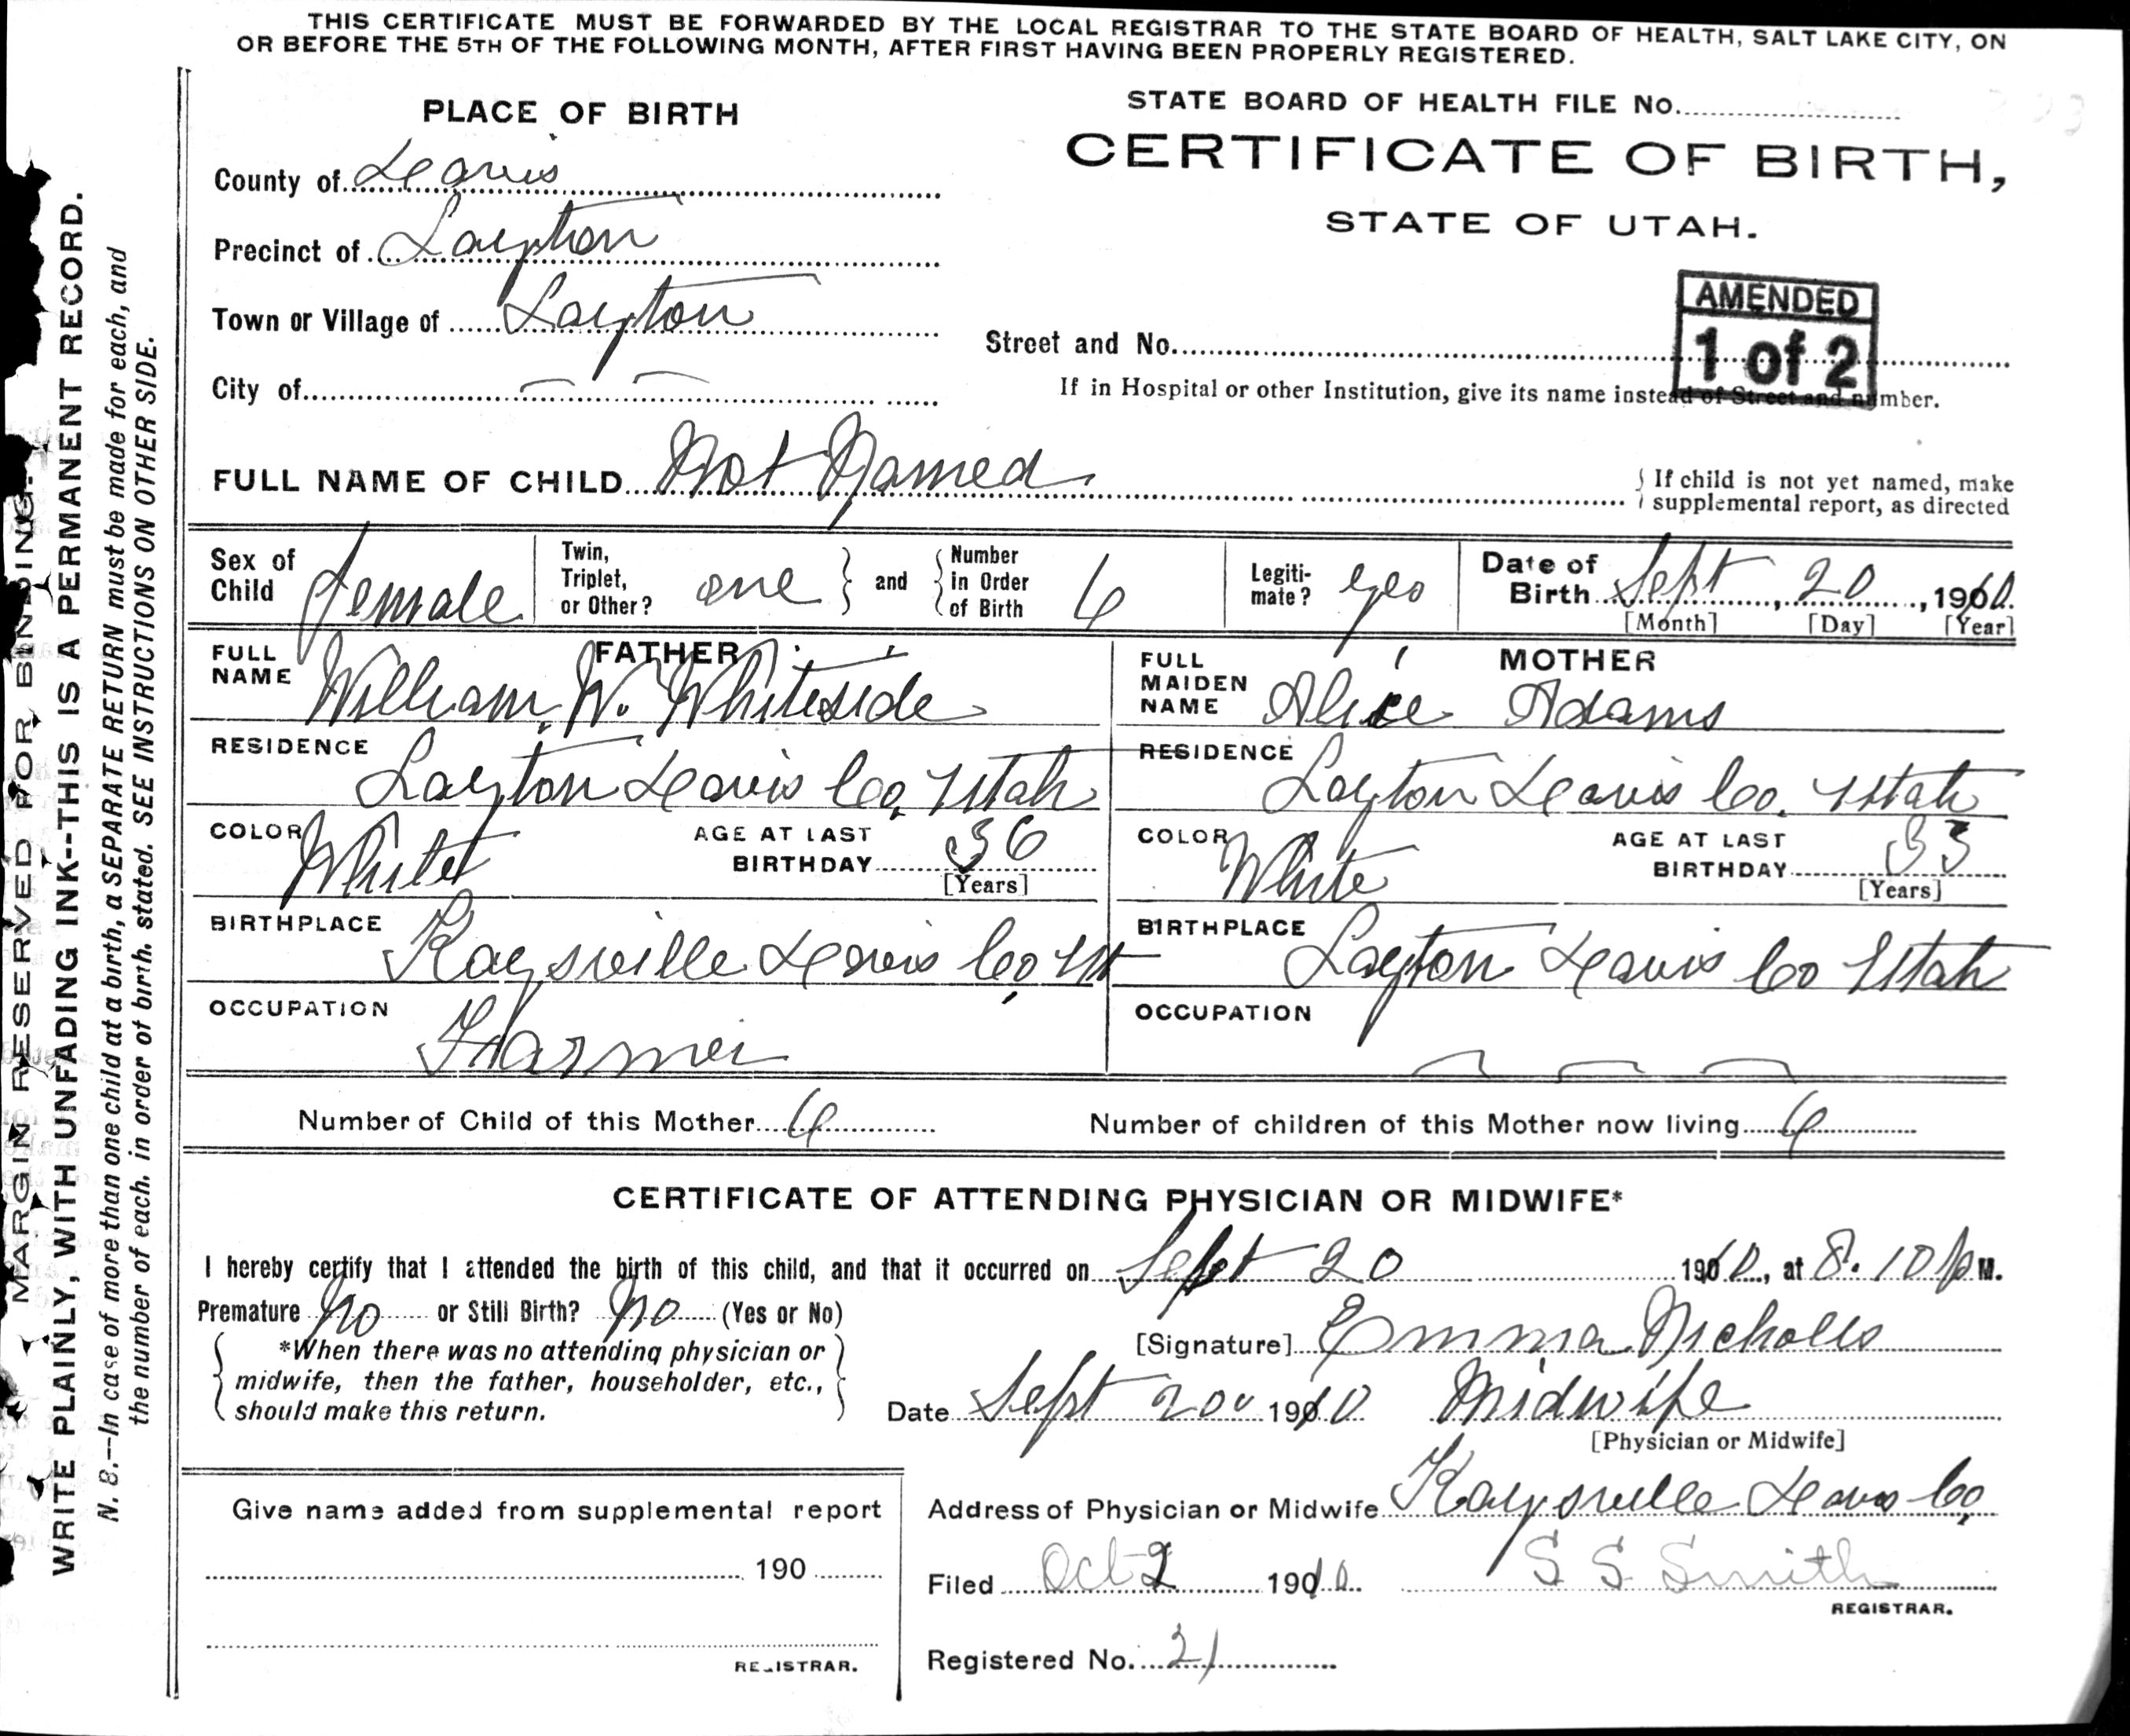 THIS CERTIFICATE MUST BE FORWARDED BY THE LOCAL REGISTRAR TO THE STATE BOARD OF HEALTH, SALT LAKE CITY, ON
OR BEFORE THE 5TH OF THE FOLLOWING MONTH, AFTER FIRST HAVING BEEN PROPERLY REGISTERED.
MARGIN RESERVED FOR BINDING.
WRITE PLAINLY, WITH UNFADING INK--THIS IS A PERMANENT RECORD.
N. B.--In case of more than one child at a birth, a SEPARATE RETURN must be made for each, and
the number of each, in order of birth, stated. SEE INSTRUCTIONS ON OTHER SIDE.
PLACE OF BIRTH
County of Davis
Precinct of Layton
Town or Village of Layton
City of — —
STATE BOARD OF HEALTH FILE No.
CERTIFICATE OF BIRTH,
STATE OF UTAH.
AMENDED
1 of 2
Street and No.
If in Hospital or other Institution, give its name instead of Street and number.
FULL NAME OF CHILD Not Named
If child is not yet named, make
supplemental report, as directed
Sex of Child female
Twin, Triplet, or Other? one and Number in Order of Birth 6
Legitimate? yes
Date of Birth Sept 20, 1910.
[Month] [Day] [Year]
FATHER
FULL NAME William W. Whiteside
RESIDENCE Layton Davis Co, Utah
COLOR White AGE AT LAST BIRTHDAY 36
[Years]
BIRTHPLACE Kaysville Davis Co Ut
OCCUPATION Farmer
MOTHER
FULL MAIDEN NAME Alice Adams
RESIDENCE Layton Davis Co. Utah
COLOR White AGE AT LAST BIRTHDAY 33
[Years]
BIRTHPLACE Layton Davis Co Utah
OCCUPATION — — —
Number of Child of this Mother 6 Number of children of this Mother now living 6
CERTIFICATE OF ATTENDING PHYSICIAN OR MIDWIFE*
I hereby certify that I attended the birth of this child, and that it occurred on Sept 20 1910, at 8.10 p M.
Premature No or Still Birth? No (Yes or No)
*When there was no attending physician or
midwife, then the father, householder, etc.,
should make this return.
[Signature] Emma Nicholls
Date Sept 20 1910 Midwife
[Physician or Midwife]
Give name added from supplemental report
190
REGISTRAR.
Address of Physician or Midwife Kaysville Davis Co,
Filed Oct 2 1910. S S Smith
REGISTRAR.
Registered No. 21